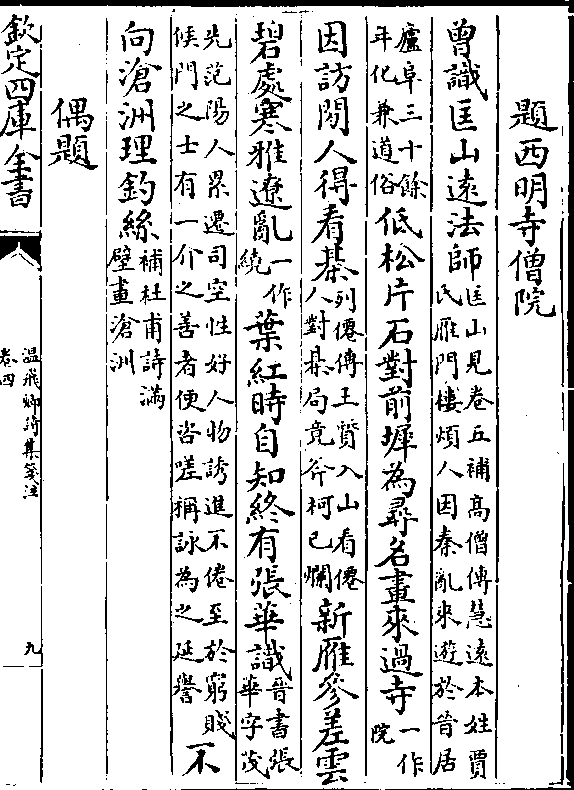 題西明寺僧院
曾識匡山逺法師匡山見卷五補髙僧傳慧逺本姓賈
氏雁門樓煩人因秦亂來遊於晉居
廬阜三十餘
年化兼道俗低松片石對前墀為尋名畫來過寺一作
院
因訪閒人得看棊列僊傳王質入山看僊
人對棊局竟斧柯已爛新雁參差雲
碧處寒雅遼亂一作
繞葉紅時自知終有張華識晉書張
華字茂
先范陽人累遷司空性好人物誘進不倦至於窮賤
候門之士有一介之善者便咨嗟稱詠為之延譽不
向滄洲理釣絲補杜甫詩滿
壁畫滄洲
偶題
欽定四庫全書
温飛卿詩集箋注
卷四
九